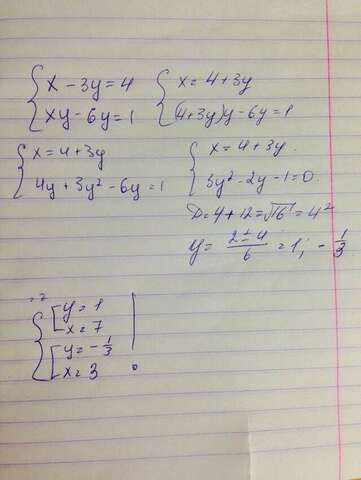 { x - 3y = 4
{ xy - 6y = 1
{ x = 4 + 3y
{ (4+3y)y - 6y = 1
{ x = 4 + 3y
{ 4y + 3y² - 6y = 1
{ x = 4 + 3y.
{ 3y² - 2y - 1 = 0.
D = 4 + 12 = √16 = 4²
y = (2 ± 4)/6 = 1; - 1/3.
{ [ y = 1
[ x = 7
[ y = - 1/3
[ x = 3